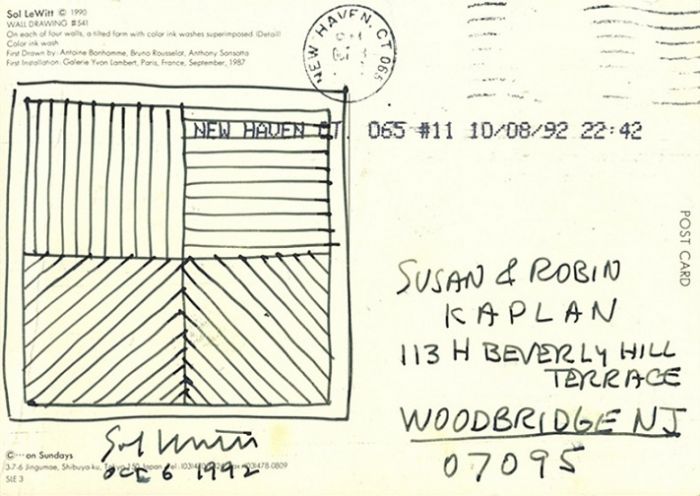 Sol LeWitt © 1990
WALL DRAWING #541
On each of four walls, a tilted form with color ink washes superimposed. (Detail)
Color ink wash
First Drawn by: Antoine Bonhomme, Bruno Rousselot, Anthony Sansotta
First Installation: Galerie Yvon Lambert, Paris, France, September, 1987
NEW HAVEN, CT 065
NEW HAVEN CT. 065 #11 10/08/92 22:42
POST CARD
SUSAN & ROBIN
KAPLAN
113 H BEVERLY HILL
TERRACE
WOODBRIDGE NJ
07095
Sol LeWitt
OCT 6 1992
on Sundays
3-7-6 Jingumae, Shibuya-ku, Tokyo 150 Japan
SLE 3